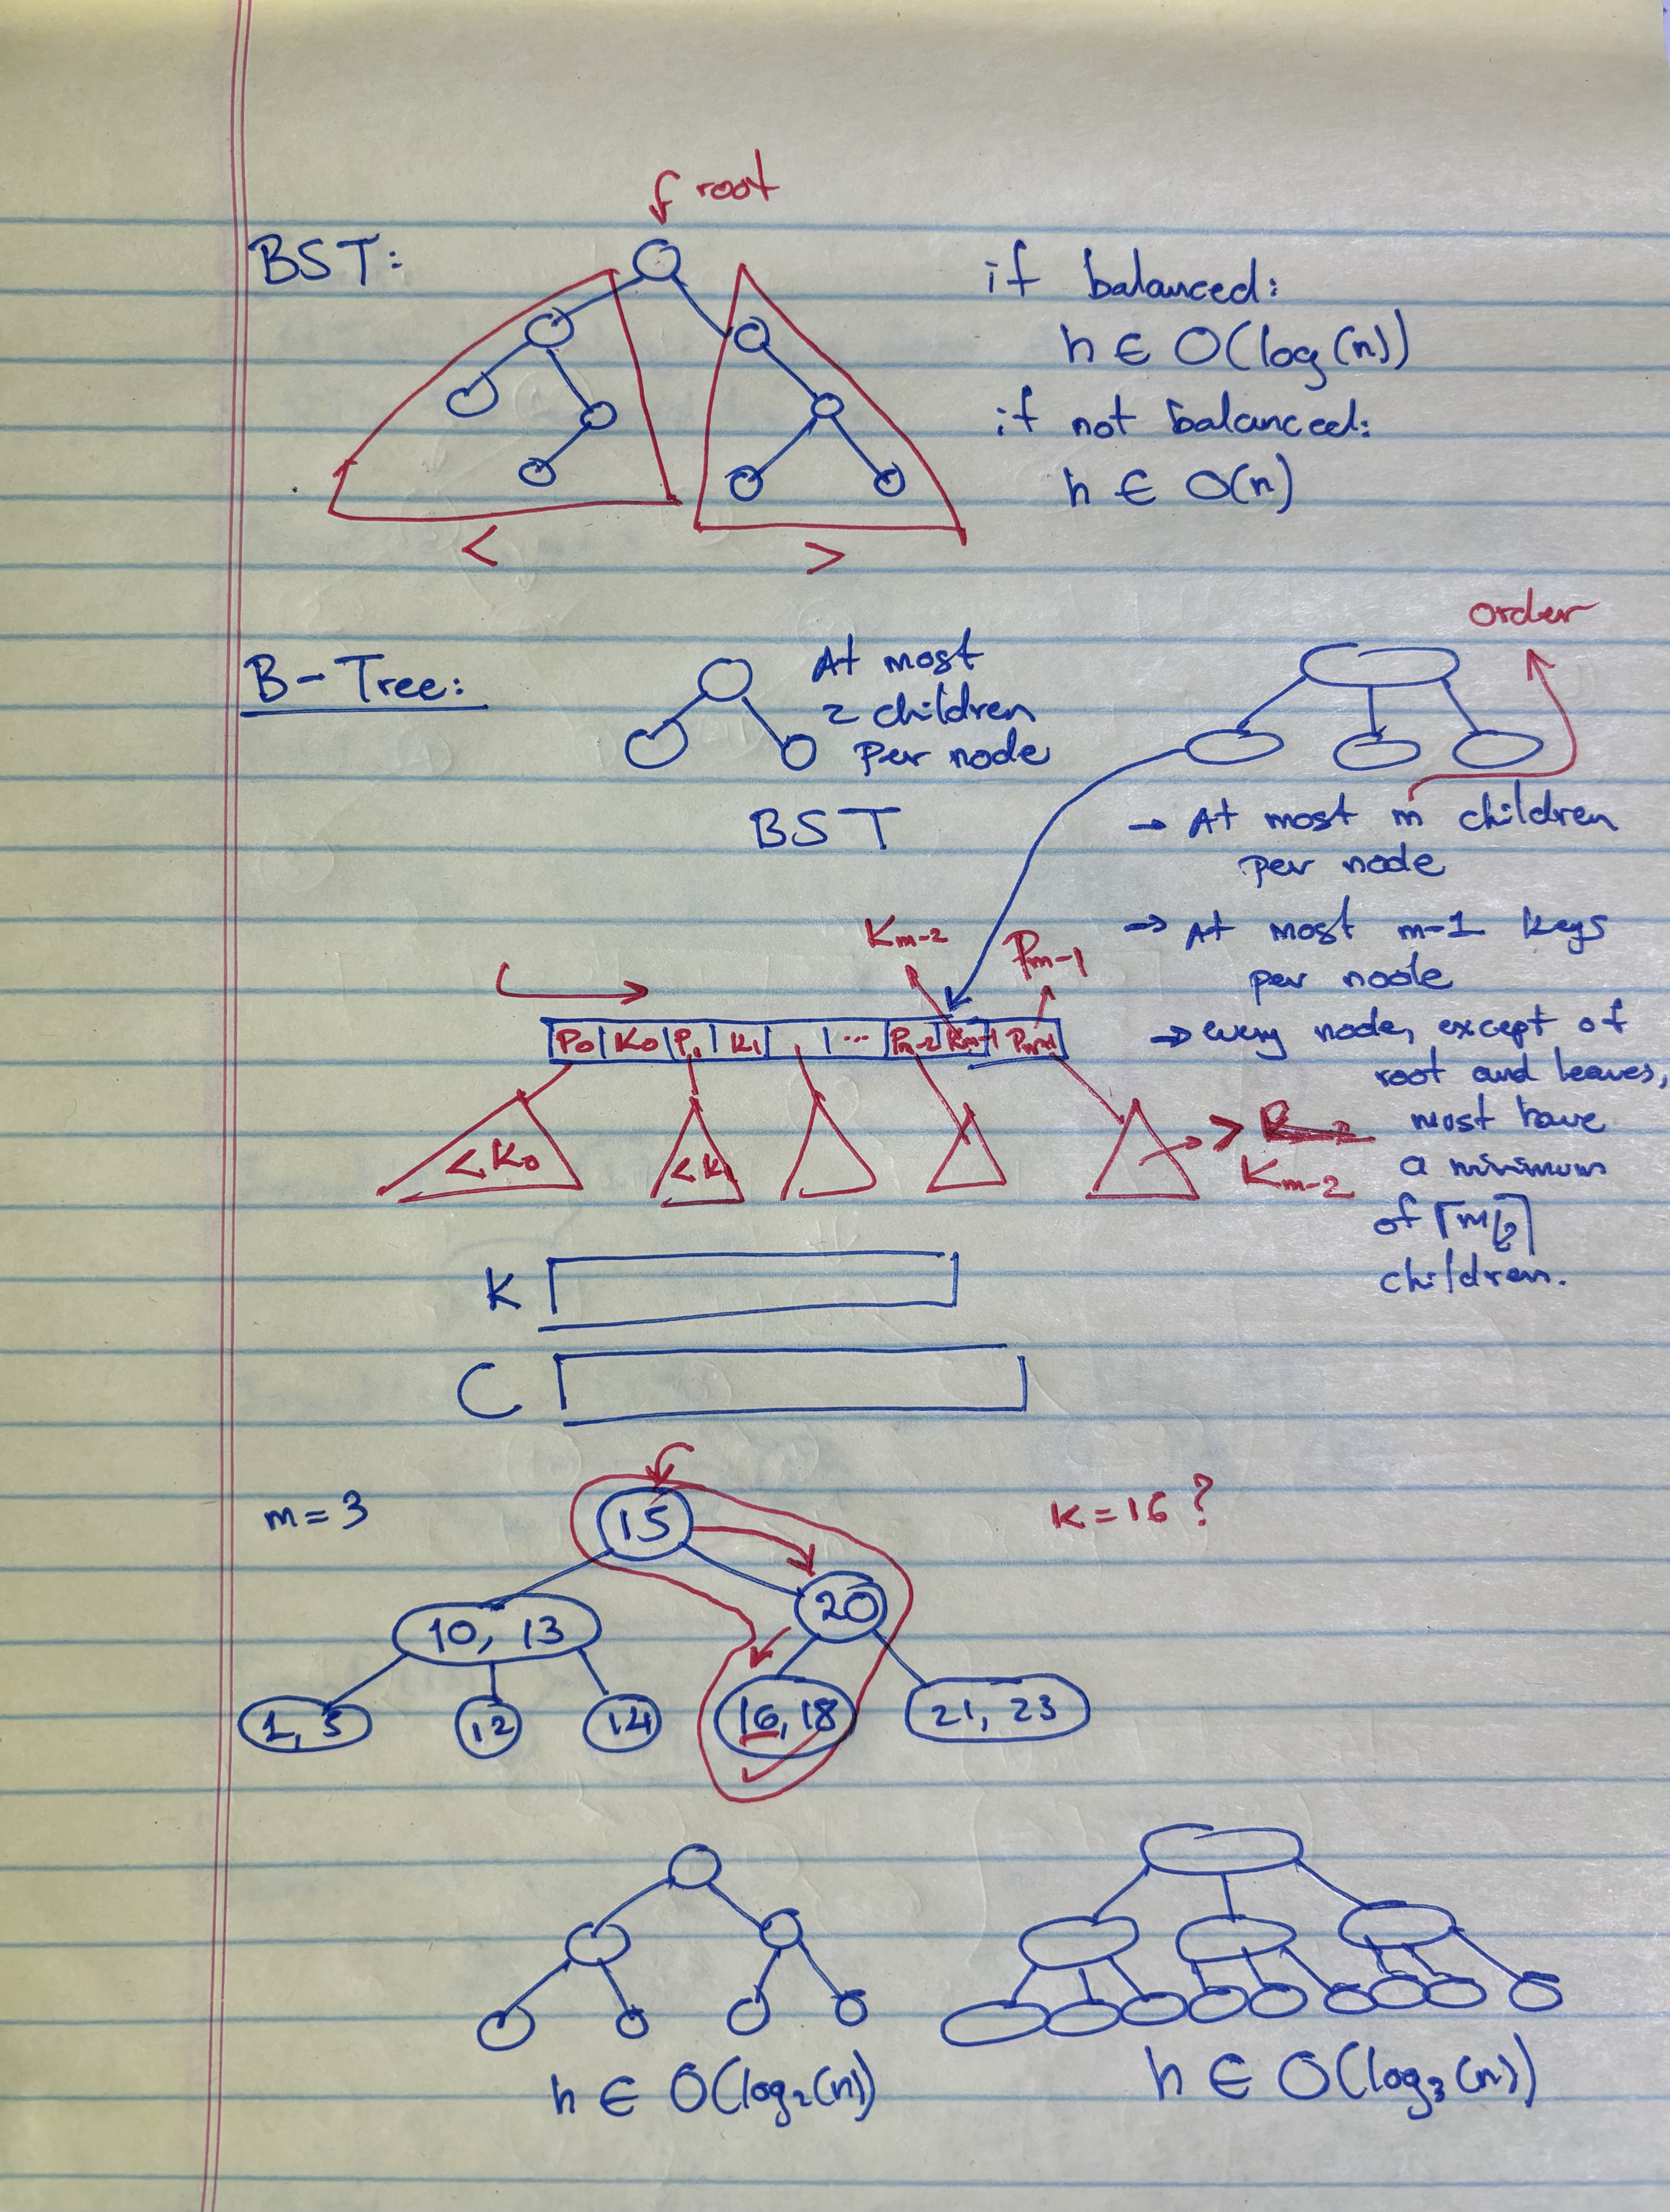 root
BST:
if balanced:
h ∈ O(log(n))
if not balanced:
h ∈ O(n)
< >
order
B-Tree:
At most
2 children
per node
BST
→ At most m children
per node
→ At most m-1 keys
per node
→ every node, except of
root and leaves,
most have
a minimum
of ⌈m/2⌉
children.
Km-2 Pm-1
P0 K0 P1 K1 ... Pm-2 Km-1
<K0 <K1 >
Km-2
K
C
m=3
K=16?
15
20
10, 13
1, 5 12 14 16, 18 21, 23
h ∈ O(log2(n)) h ∈ O(log3(n))